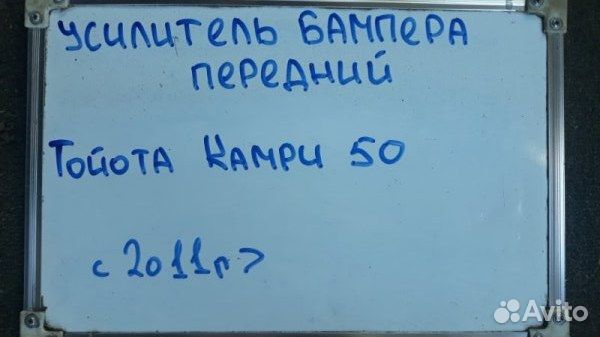 Усилитель бампера
передний
Тойота Камри 50
с 2011г >
Avito